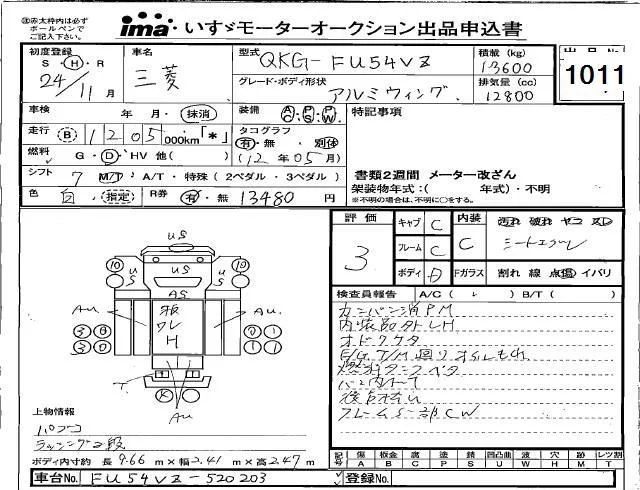 ㊟赤太枠内は必ずボールペンでご記入下さい。
ima いすゞモーターオークション出品申込書
初度登録 S・H・R 24/11月
車名 三菱
型式 QKG-FU54VZ
積載(kg) 13600
出品No. 1011
グレード・ボディ形状 アルミウィング
排気量(cc) 12800
車検 年・月・抹消
装備 AC・PS・PW
特記事項
走行 B 1205,000km「*」
タコグラフ 有・無・別体 (12年05月)
燃料 G・D・HV 他( )
書類2週間 メーター改ざん
シフト 7 M/T・A/T・特殊(2ペダル・3ペダル)
架装物年式:( 年式)・不明
※不明の場合は、不明に○をする。
色 白(指定) R券 有・無 13480円
評価 3
キャブ C 内装 C 汚れ 破れ ヤコ スレ
フレーム C シートエグレ
ボディ D Fガラス 割れ 線 点傷 イバリ
検査員報告 A/C( ) B/T( )
カンバン消PM
内装品外LH
E/G T/M廻りオイルもれ
後
フレームS一部CW
10 US 10
US US
AS
Au 板ワレH Au.
Au
上物情報
パブコ
ラッシング2段
ボディ内寸約 長9.66m×幅2.41m×高2.47m
記号 傷A 板金B 腐C 塗P 錆S 凹凸曲U 波W 穴H 跡M レツ割T
車台No. FU54VZ-520203
登録No.